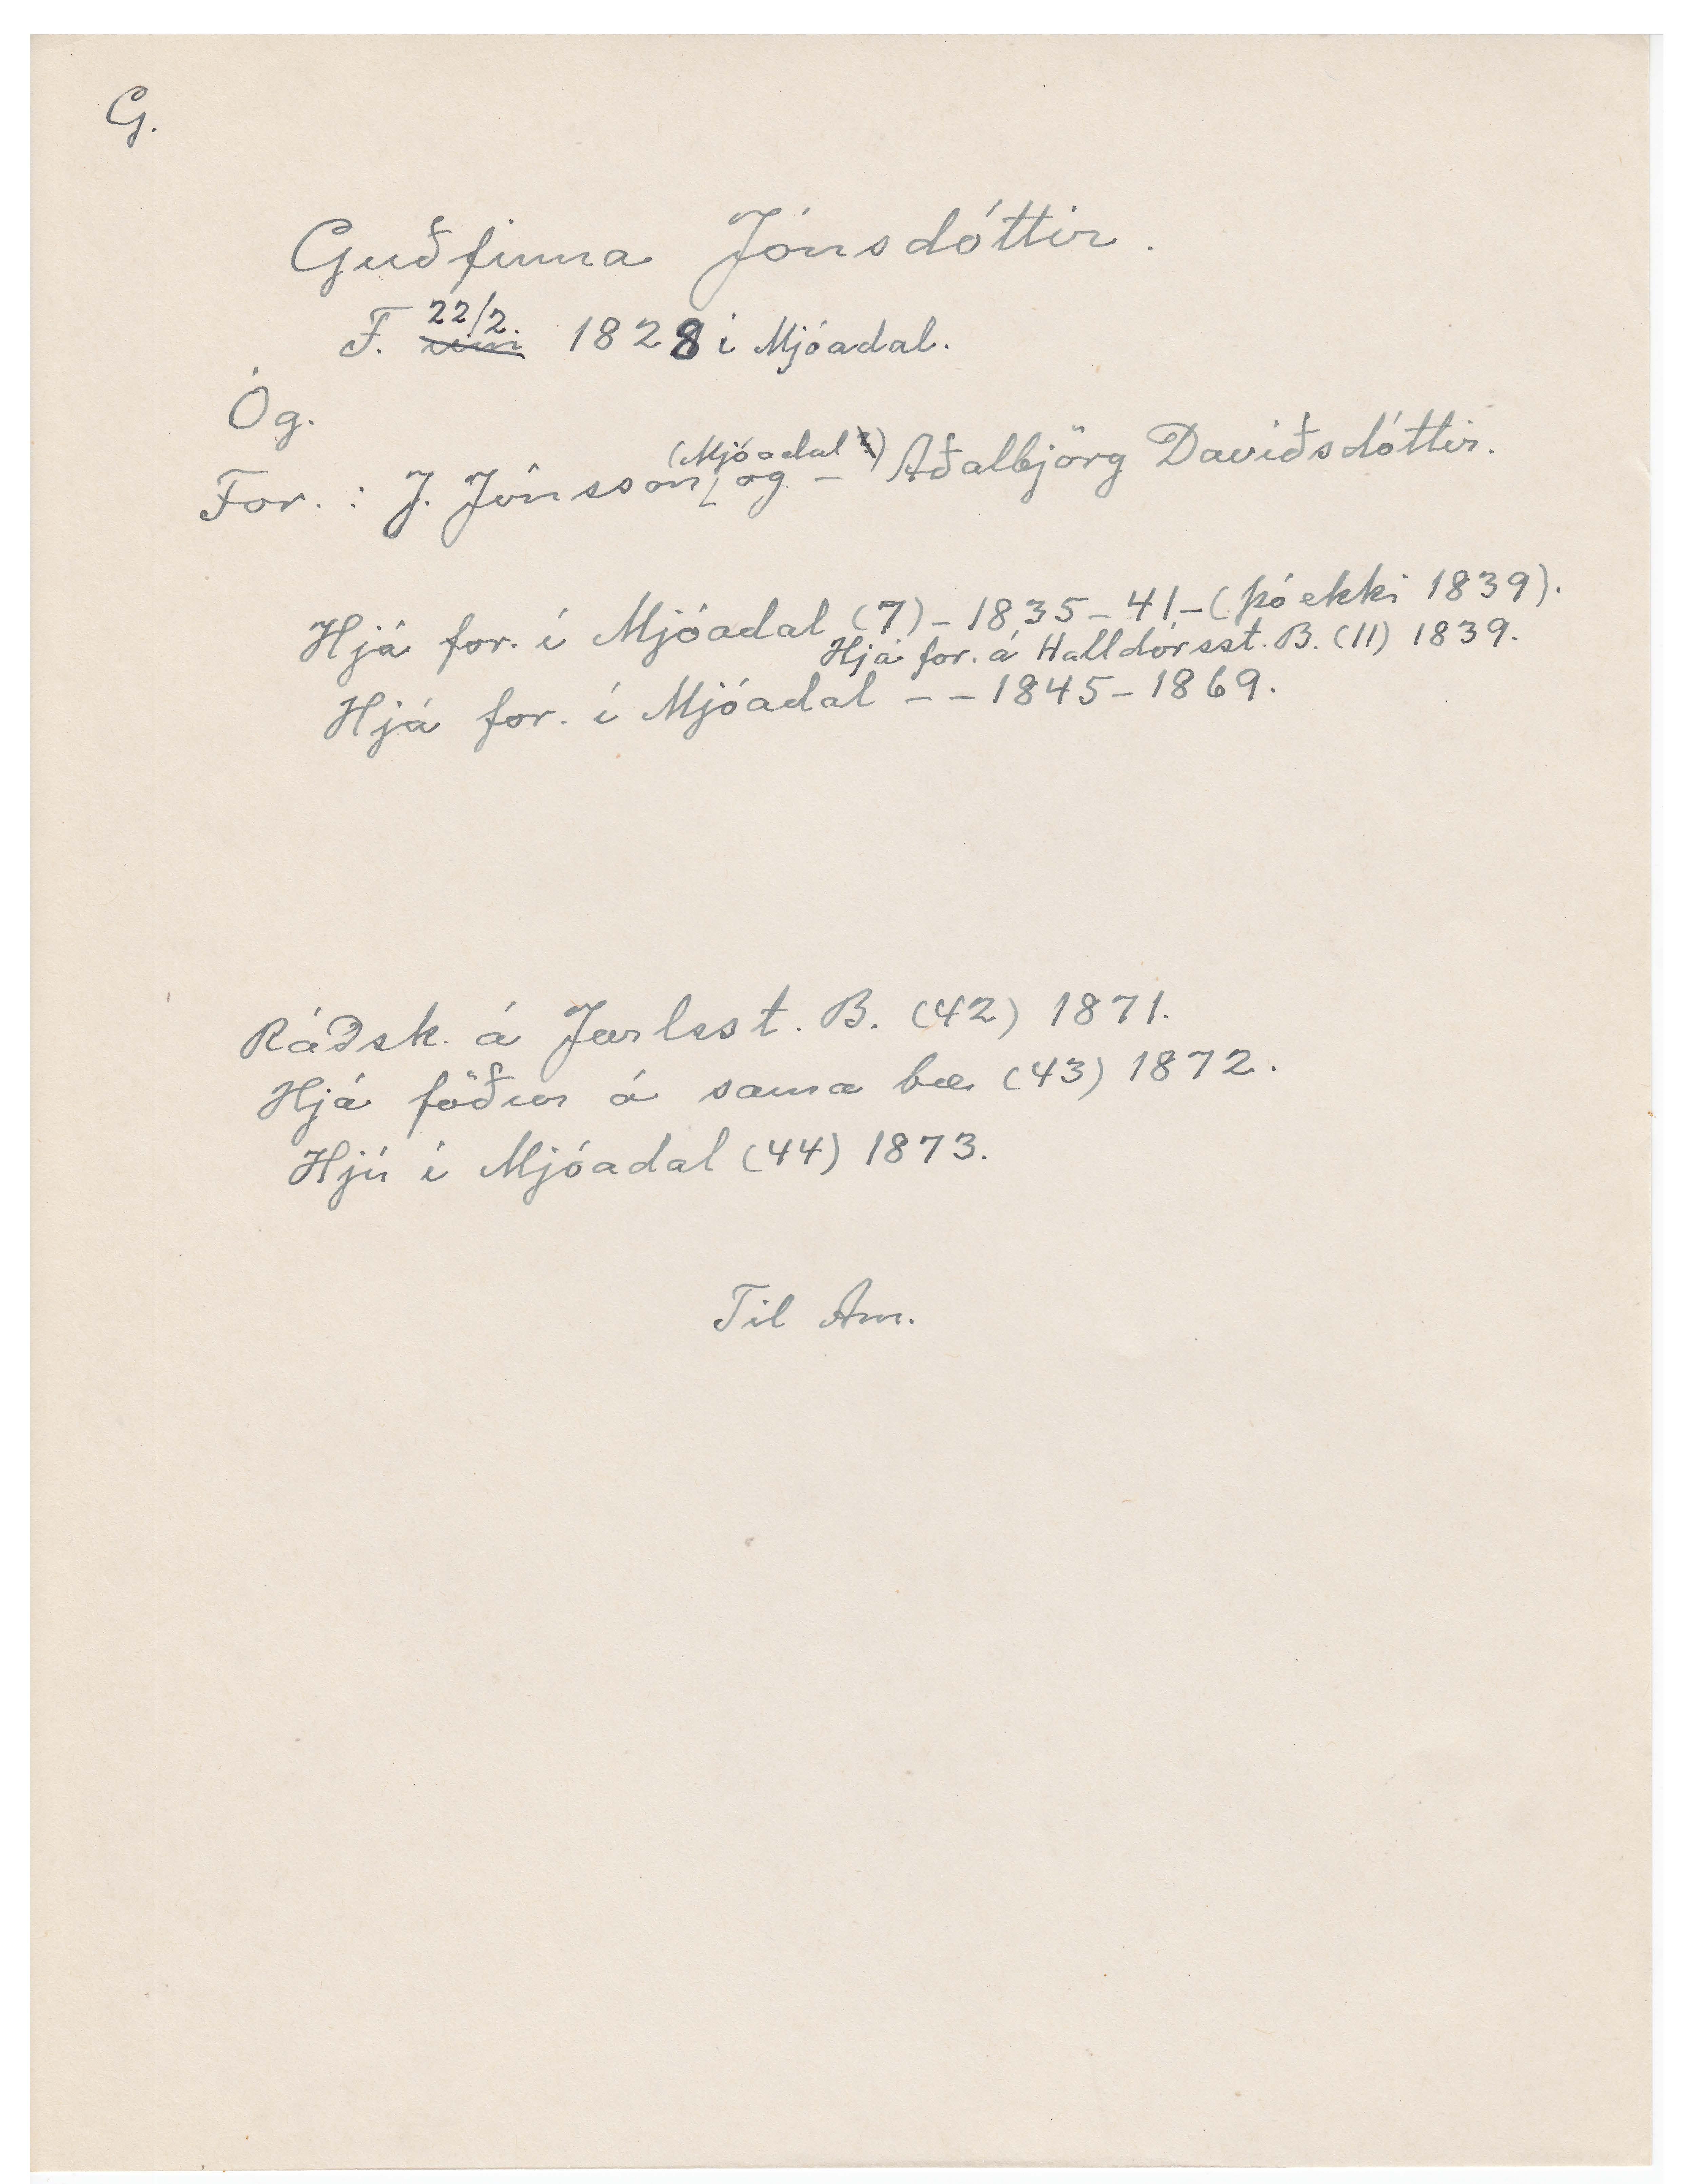 G.
Guðfinna Jónsdóttir.
F. 22/2. um 1828 í Mjóadal.
Óg.
For. : J. Jónsson, (Mjóadal) og – Aðalbjörg Davíðsdóttir.
Hjá for. í Mjóadal (7) – 1835 – 41 – (þó ekki 1839).
Hjá for. á Halldórsst. B. (11) 1839.
Hjá for. í Mjóadal – – 1845 – 1869.
Ráðsk. á Jarlsst. B. (42) 1871.
Hjá föður á sama bæ (43) 1872.
Hjú í Mjóadal (44) 1873.
Til Am.